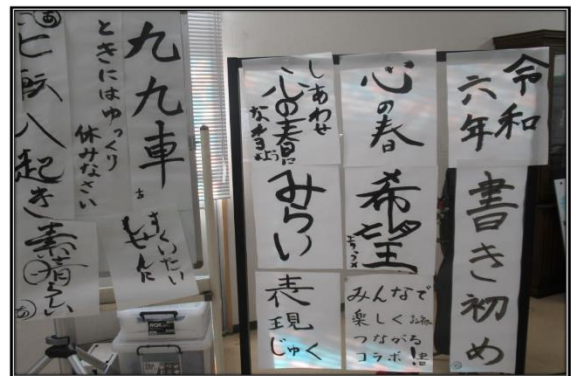 令和
六年
書き初め
心の春
希望
みんなで
楽しく
つながる
コラボ
しあわせ
心の春に
なれますように
みらい
表現
じゅく
九九車
ときにはゆっくり
休みなさい
七転八起き
素晴らしい